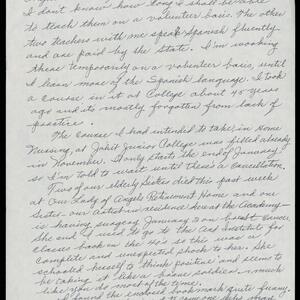 I don't know how long I shall be able
to teach them on a volunteer basis. The other
two teachers with me speak Spanish fluently
and are paid by the State. I'm working
there temporarily on a volunteer basis, until
I learn more of the Spanish language. I took
a course in it at College about 40 years
ago and its mostly forgotten from lack of
practice.
The course I had intended to take, in Home
Nursing, at Joliet Junior College was filled already
in November. It only starts the end of January
so I'm told to wait until there's a cancellation.
Two of our elderly Sisters died this past week
at Our Lady of Angels Retirement Home and one
Sister - our Artist in residence here at the Academy -
is having surgery January on breast cancer.
She and I used to go to the Art Institute for
classes back in the 40's so this was a
complete and unexpected shock to her. She
schooled herself to "think positive" and seems to
be taking it like a brave soldier - much
like you do most of the time.
I found the enclosed bookmark quite funny.